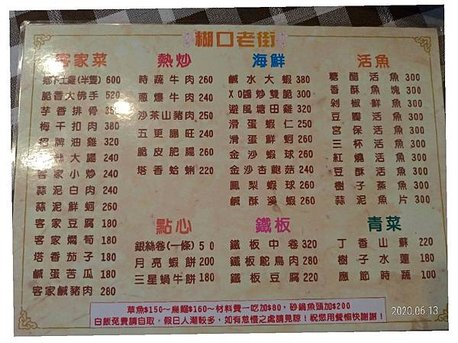 糊口老街
客家菜
鄉下土雞(半隻) 600
脆香大佛手 520
芋香排骨 350
梅干扣肉 380
招牌油雞 320
客家小炒 240
蒜泥白肉 240
蒜泥鮮蚵 260
客家豆腐 180
客家燜筍 180
塔香茄子 180
鹹蛋苦瓜 180
客家鹹豬肉 260
熱炒
時蔬牛肉 240
蔥爆牛肉 240
沙茶山豬肉 240
五更腸旺 240
脆皮肥腸 240
塔香蛤蜊 220
點心
銀絲卷(一條) 50
月亮蝦餅 200
三星蔥牛餅 180
海鮮
鹹水大蝦 380
XO醬炒雙脆 300
避風塘田雞 320
滑蛋蝦仁 250
滑蛋鮮蚵 260
金沙蝦球 260
金沙杏鮑菇 240
鳳梨蝦球 260
鹹酥溪蝦 260
鐵板
鐵板中卷 320
鐵板鴕鳥肉 280
鐵板豆腐 220
活魚
糖醋活魚 300
香酥魚塊 300
剁椒鮮魚 300
豆瓣活魚 300
宮保活魚 300
三杯活魚 300
紅燒活魚 300
豆酥活魚 300
樹子蒸魚 300
蒜泥魚片 300
青菜
丁香山蘇 220
樹子水蓮 180
應時時蔬 180
草魚$150~烏鰡$160~材料費一吃加$80, 砂鍋魚頭加$200
白飯免費請自取。假日人潮較多, 如有怠慢之處請見諒! 祝您用餐愉快謝謝!
2020.06.13